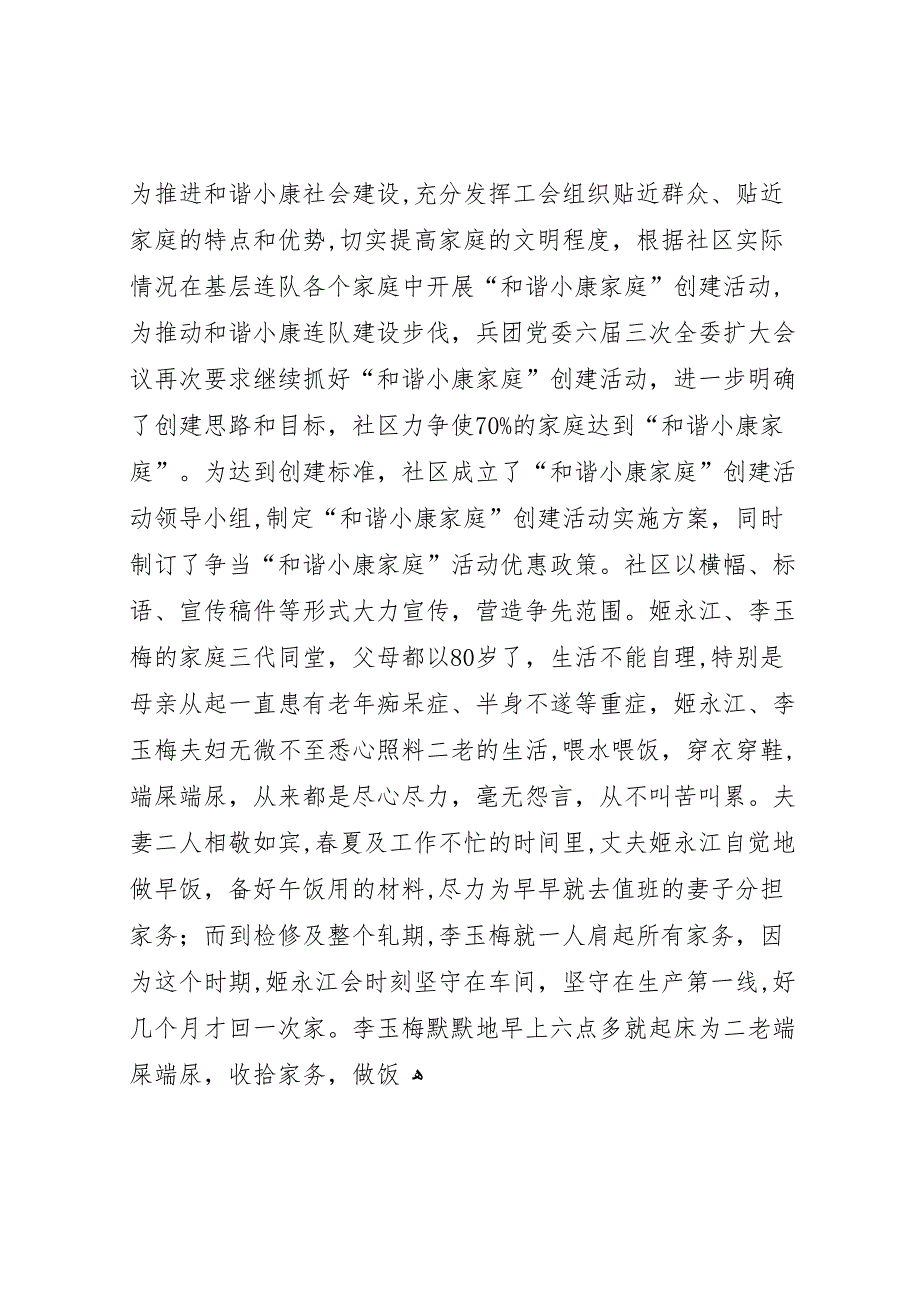 为推进和谐小康社会建设,充分发挥工会组织贴近群众、贴近
家庭的特点和优势,切实提高家庭的文明程度，根据社区实际
情况在基层连队各个家庭中开展“和谐小康家庭”创建活动,
为推动和谐小康连队建设步伐，兵团党委六届三次全委扩大会
议再次要求继续抓好“和谐小康家庭”创建活动，进一步明确
了创建思路和目标，社区力争使70%的家庭达到“和谐小康家
庭”。为达到创建标准，社区成立了“和谐小康家庭”创建活
动领导小组,制定“和谐小康家庭”创建活动实施方案，同时
制订了争当“和谐小康家庭”活动优惠政策。社区以横幅、标
语、宣传稿件等形式大力宣传，营造争先范围。姬永江、李玉
梅的家庭三代同堂，父母都以80岁了，生活不能自理,特别是
母亲从起一直患有老年痴呆症、半身不遂等重症，姬永江、李
玉梅夫妇无微不至悉心照料二老的生活,喂水喂饭，穿衣穿鞋,
端屎端尿，从来都是尽心尽力，毫无怨言，从不叫苦叫累。夫
妻二人相敬如宾,春夏及工作不忙的时间里,丈夫姬永江自觉地
做早饭，备好午饭用的材料,尽力为早早就去值班的妻子分担
家务；而到检修及整个轧期,李玉梅就一人肩起所有家务，因
为这个时期,姬永江会时刻坚守在车间，坚守在生产第一线,好
几个月才回一次家。李玉梅默默地早上六点多就起床为二老端
屎端尿，收拾家务，做饭 ﻫ